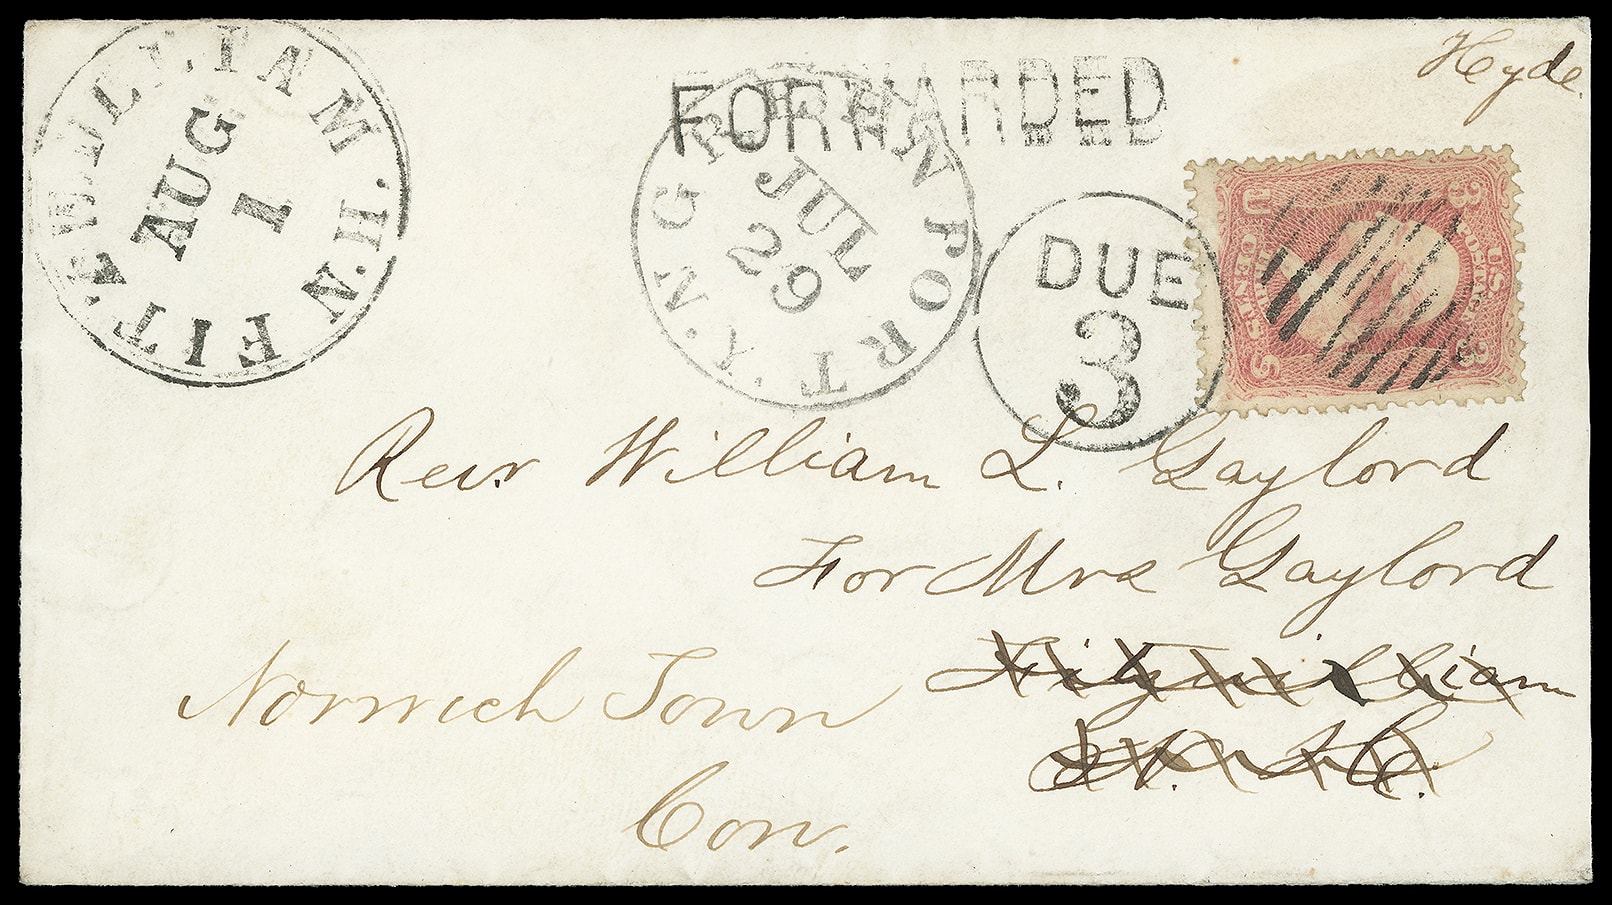 Hyde.
FITZWILLIAM.N.H.
AUG
1
GREENPORT.N.Y.
JUL
29
FORWARDED
DUE
3
U.S. POSTAGE
3 3
U S
CENTS
Rev. William L. Gaylord
For Mrs Gaylord
Fitzwilliam
N. H.
Norwich Town
Con.